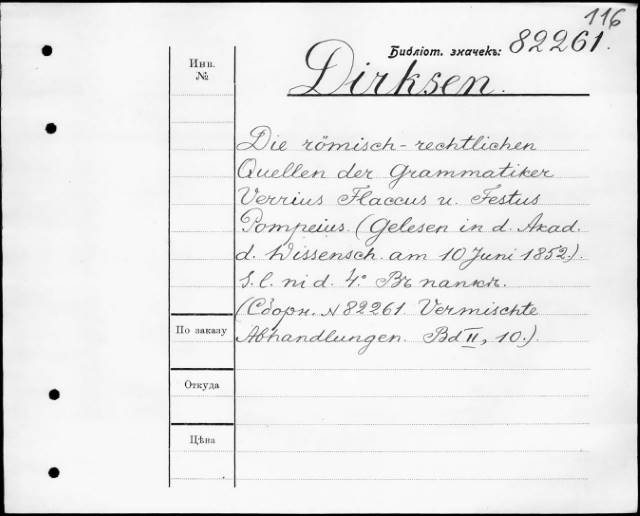 116
Библіот. значекъ: 82261.
Инв.
№
Dirksen.
Die römisch-rechtlichen
Quellen der Grammatiker
Verrius Flaccus u. Festus
Pompeius. (Gelesen in d. Akad.
d. Wissensch. am 10 Juni 1852.).
S. l. ni d. 4º. Въ папкѣ.
(Сборн. N 82261. Vermischte
По заказу
Abhandlungen. Bd II, 10.)
Откуда
Цѣна